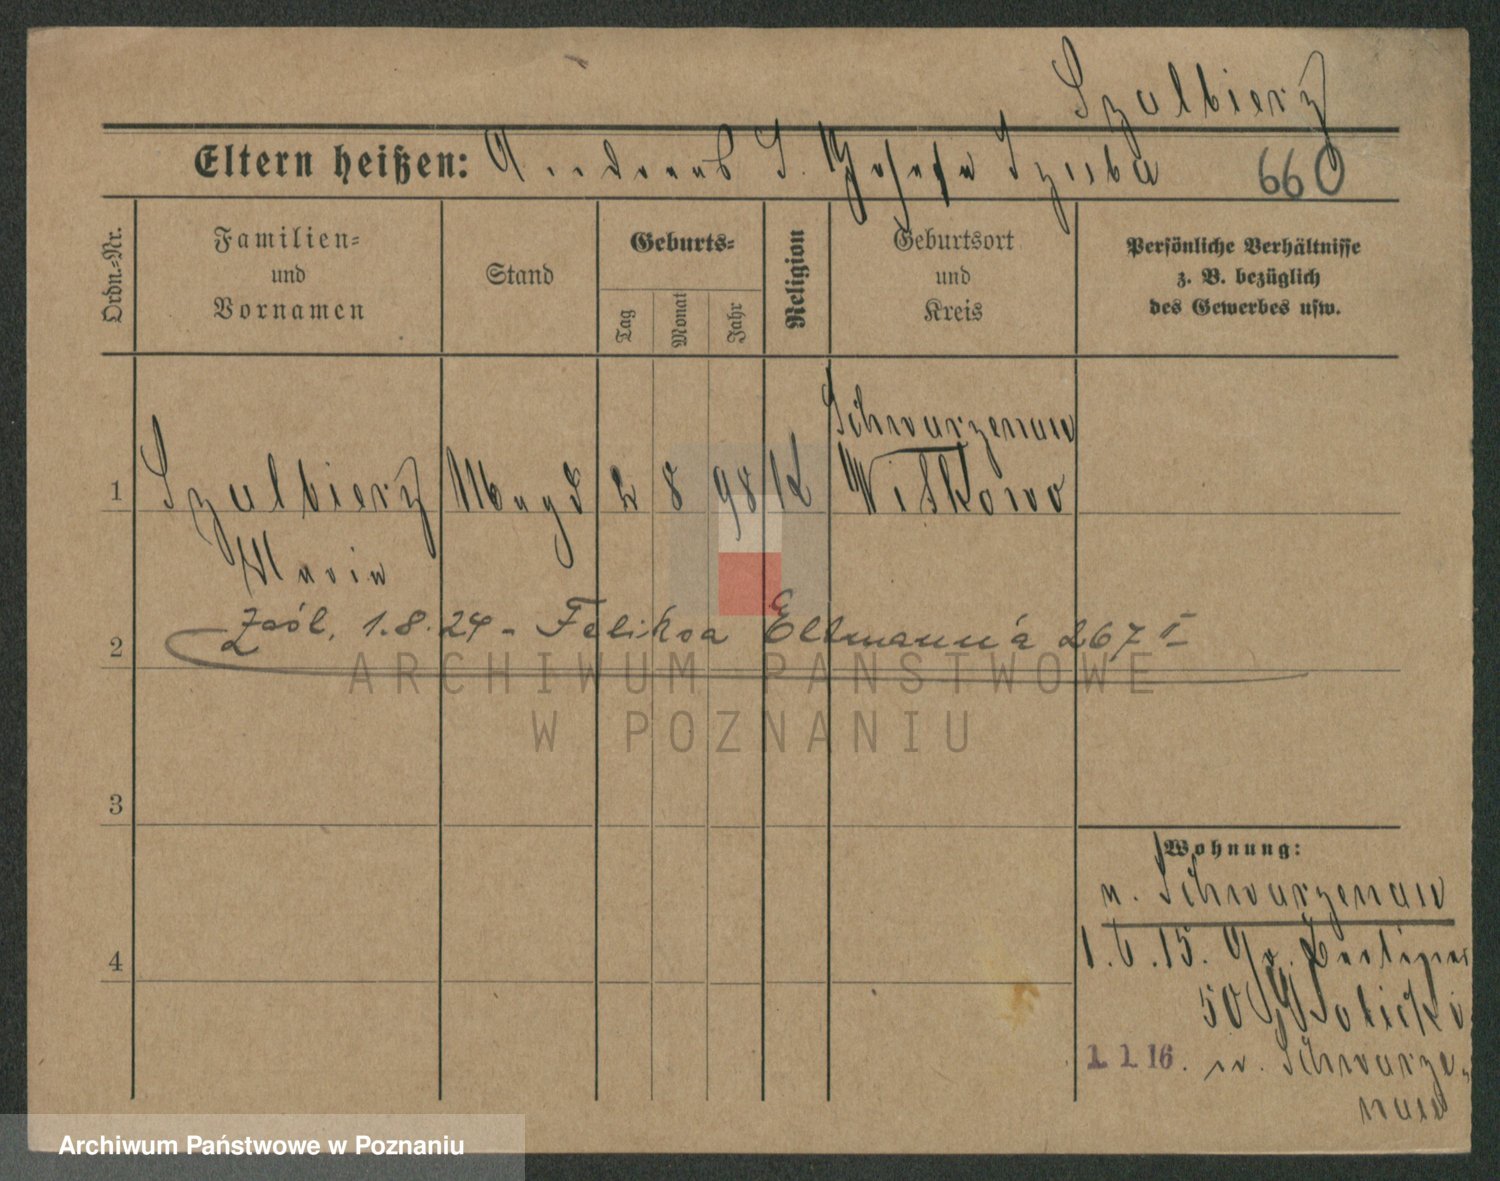 Szalbierz
Eltern heißen: Andreas S. Josefa Szuba 660
Ordn.-Nr.
Familien-
und
Vornamen
Stand
Geburts-
Tag
Monat
Jahr
Religion
Geburtsort
und
Kreis
Persönliche Verhältnisse
z. B. bezüglich
des Gewerbes usw.
Schwarzenau
1 Szalbierz Magd 2 8 98 K Witkowo
Maria
2 Zaśl. 1.8.24 - Feliksa Eltmann'a 267 I
ARCHIWUM PAŃSTWOWE
W POZNANIU
3
Wohnung:
n. Schwarzenau
4 1.6.15. Gr. Berliner
50
1. 1. 16. n. Schwarze-
nau
Archiwum Państwowe w Poznaniu